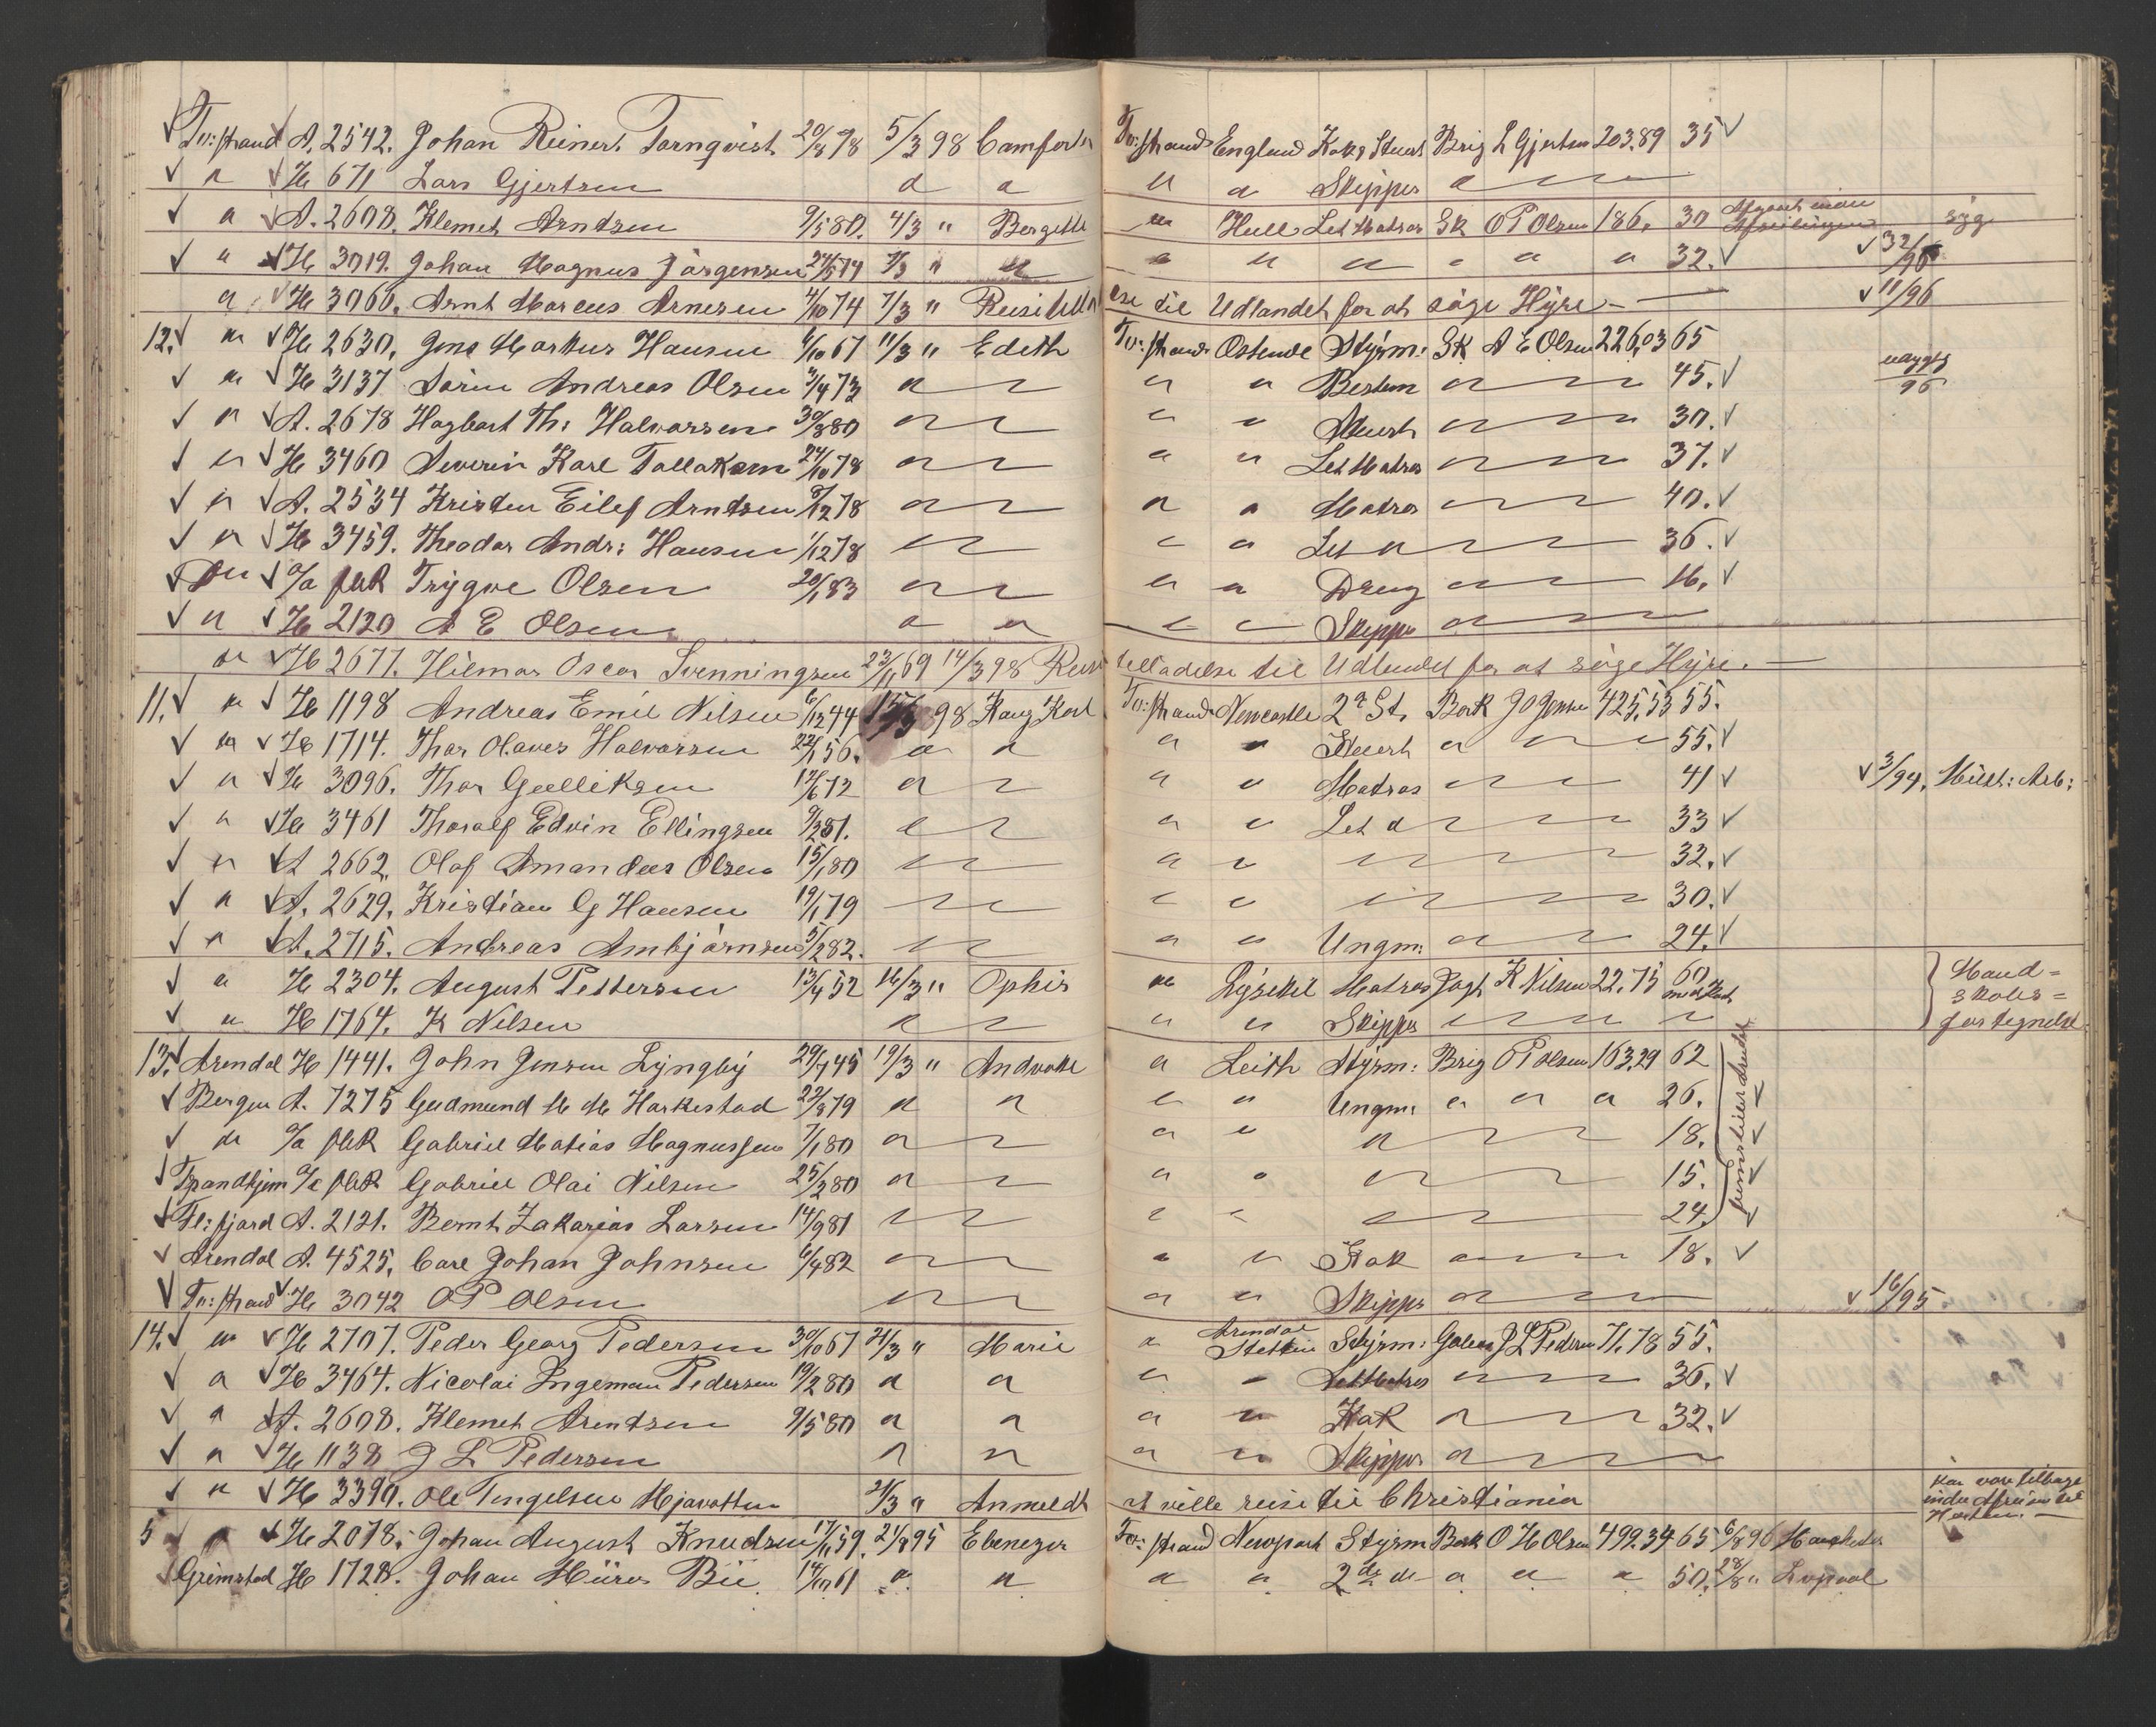 Tv:strand A. 2542. Johan Reinert Tornqvist 20/8 78 5/3 98 Comfort Tv:strand England Kok & Stuert Brig L Gjertsen 203.89 35
" H 671 Lars Gjertsen " " " " Skipper "
" A. 2608. Klemet Arntsen 9/5 80. 4/3 " Bergitte " Hull Let Matros Sk O P Olsen 186. 30 syg
" H 3019. Johan Magnus Jörgensen 24/5 74 7/3 " " " " " " " " 32.
" H 3060. Arnt Marcus Arnesen 4/10 74 7/3 " Reisetilladelse til Udlandet for at söge Hyre 11/96
12. " H 2630. Jens Markus Hansen 6/10 67 11/3 " Edith Tv:strand Ostende Styrm: Sk A E Olsen 226,03 65
" H 3137 Sören Andreas Olsen 3/4 73 " " " Bestm " 45.
" A. 2678 Hagbart Th: Halvorsen 30/8 80 " " " Stuert " 30.
" H 3460 Severin Karl Tallaksen 24/10 78 " " " Let Matros " 37.
" A. 2534 Kristen Eilef Arntsen 8/12 78 " " " Matros " 40.
" H 3459. Theodor Andr: Hansen 1/12 78 " " " Let " 36.
" Trygve Olsen 20/1 83 " " " Dreng " 16.
" H 2120 A E Olsen " " " " Skipper "
" H 2677. Hilmar Oscar Svenningsen 23/11 69 14/3 98 Reisetilladelse til Udlandet for at söge Hyre.
11. " H 1198 Andreas Emil Nilsen 6/12 44 15/3 98 Kong Karl Tv:strand Newcastle 2n St. Bark J Jensen 425,53 55.
" H 1714. Thor Olaves Halvorsen 22/1 56. " " " " Stuert " " 55.
" H 3096. Thor Gulliksen 12/6 72 " " " Matros " 41 3/94. Milit: Arb:
" H 3461 Thoralf Edvin Ellingsen 9/2 81. " " " Let " 33
" A 2662. Olaf Amandus Olsen 15/1 80 " " " " 32.
" A. 2629. Kristian G Hansen 19/1 79 " " " " 30.
" A. 2715. Andreas Ambjörnsen 5/2 82. " " " Ungm. " 24.
" H 2304. August Pettersen 13/4 52 16/3 " Ophir " Lysekil Matros Jagt K Nilsen 22.75 60
" H 1764. K Nilsen " " " Skipper "
13. Arendal H 1441. John Jensen Lyngby 29/7 45 19/3 " Andvake " Leith Styrm: Brig O P Olsen 163,29 62
Bergen A. 7275 Gudmund M M Harkestad 22/8 79 " " " " Ungm. " " " 26.
" Gabriel Matias Magnussen 7/1 80 " " " " 18.
Trondhjem Gabriel Olai Nilsen 25/2 80 " " " " 15.
Fl:fjord A. 2121. Bernt Zakarias Larsen 14/9 81 " " " " 24.
Arendal A. 4525. Carl Johan Johnsen 6/4 82 " " " Kok " 18.
Tv:strand H 3042 O P Olsen " " " Skipper " 16/95
14. " H 2707. Peder Georg Pedersen 30/10 67 21/3 " Marie " Arendal Stettin Styrm: Galeas J L Pedersen 71,78 55.
" H 3464. Nicolai Ingeman Pedersen 19/2 80 " " " " Let Matros " 36.
" A. 2608. Klemet Arentsen 9/5 80 " " " " Kok " 32.
" H 1138 J L Pedersen " " " " Skipper "
" H 3390. Ole Tengelsen Mjavatten 21/3 " Anmeldt at ville reise til Christiania
5 " H 2078. Johan August Knudsen 17/11 59. 21/8 95 Ebenezer Tv:strand Newport Styrm Bark O H Olsen 499.34 65 6/8 96
Grimstad H 1728. Johan Bie 14/10 61 " " " " 2den do " " " 50. 28/8 "